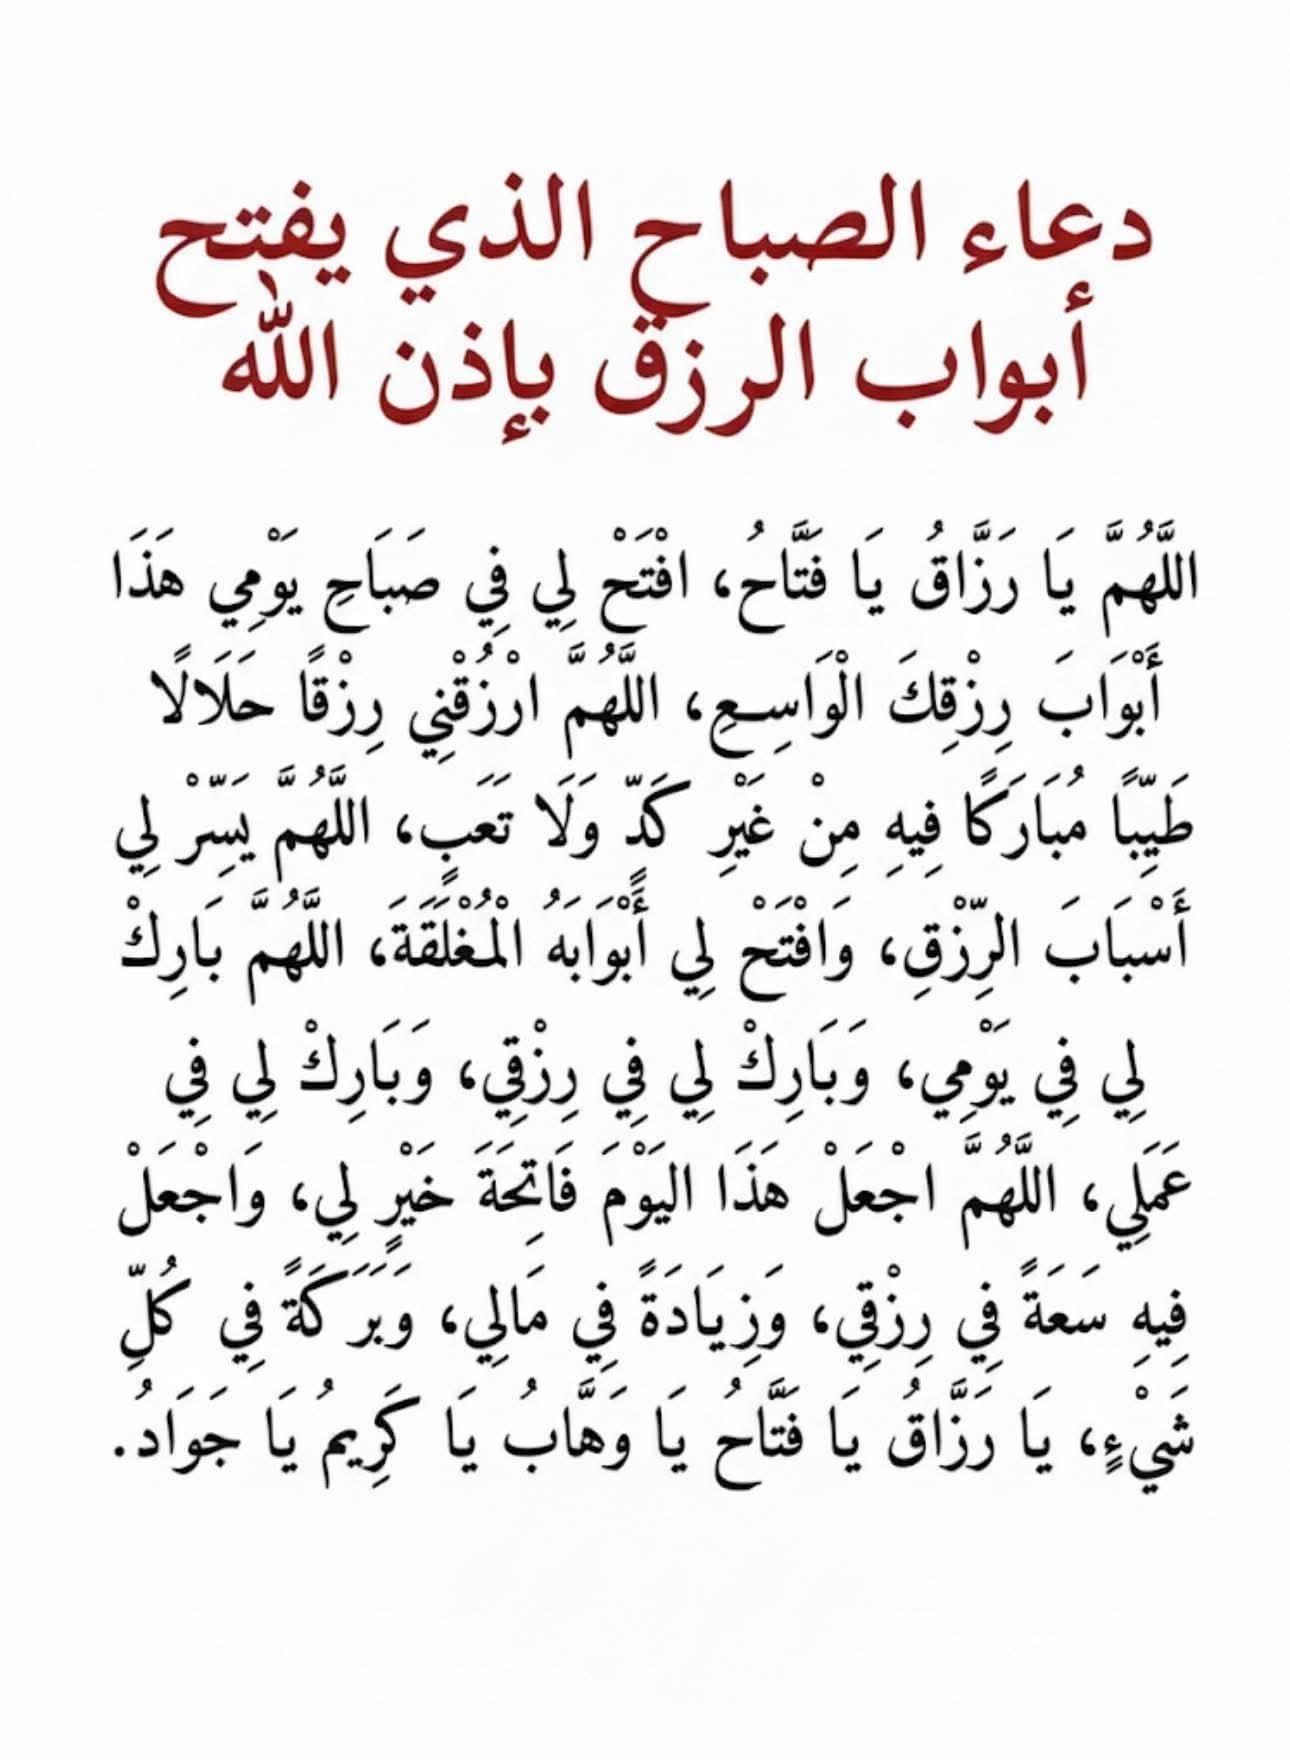 دعاء الصباح الذي يفتح
أبواب الرزق بإذن الله
اللَّهُمَّ يَا رَزَّاقُ يَا فَتَّاحُ، افْتَحْ لِي فِي صَبَاحِ يَوْمِي هَذَا
أَبْوَابَ رِزْقِكَ الْوَاسِعِ، اللَّهُمَّ ارْزُقْنِي رِزْقًا حَلَالًا
طَيِّبًا مُبَارَكًا فِيهِ مِنْ غَيْرِ كَدٍّ وَلَا تَعَبٍ، اللَّهُمَّ يَسِّرْ لِي
أَسْبَابَ الرِّزْقِ، وَافْتَحْ لِي أَبْوَابَهُ الْمُغْلَقَةَ، اللَّهُمَّ بَارِكْ
لِي فِي يَوْمِي، وَبَارِكْ لِي فِي رِزْقِي، وَبَارِكْ لِي فِي
عَمَلِي، اللَّهُمَّ اجْعَلْ هَذَا اليَوْمَ فَاتِحَةَ خَيْرٍ لِي، وَاجْعَلْ
فِيهِ سَعَةً فِي رِزْقِي، وَزِيَادَةً فِي مَالِي، وَبَرَكَةً فِي كُلِّ
شَيْءٍ، يَا رَزَّاقُ يَا فَتَّاحُ يَا وَهَّابُ يَا كَرِيمُ يَا جَوَادُ.